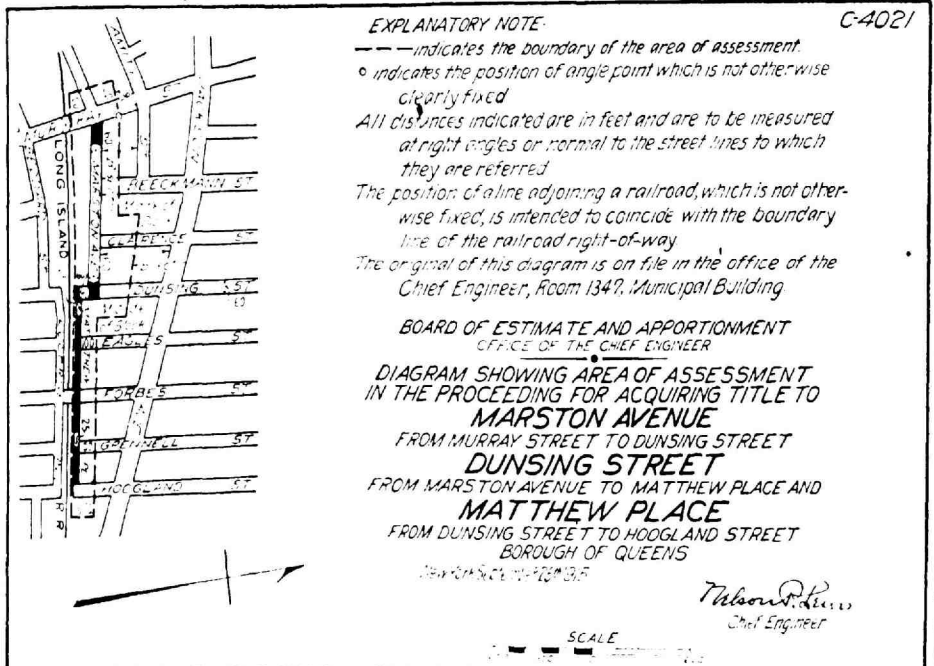 C-4021
EXPLANATORY NOTE:
— — — indicates the boundary of the area of assessment.
o indicates the position of angle point which is not otherwise
clearly fixed
All distances indicated are in feet and are to be measured
at right angles or normal to the street lines to which
they are referred
The position of a line adjoining a railroad, which is not other-
wise fixed, is intended to coincide with the boundary
line of the railroad right-of-way.
The original of this diagram is on file in the office of the
Chief Engineer, Room 1347, Municipal Building.
BOARD OF ESTIMATE AND APPORTIONMENT
OFFICE OF THE CHIEF ENGINEER
DIAGRAM SHOWING AREA OF ASSESSMENT
IN THE PROCEEDING FOR ACQUIRING TITLE TO
MARSTON AVENUE
FROM MURRAY STREET TO DUNSING STREET
DUNSING STREET
FROM MARSTON AVENUE TO MATTHEW PLACE AND
MATTHEW PLACE
FROM DUNSING STREET TO HOOGLAND STREET
BOROUGH OF QUEENS
New York
Chief Engineer
SCALE
MURRAY ST
LONG ISLAND
R R
MARSTON
BEECKMANN ST
CLARENCE ST
DUNSING ST
EAGLES ST
FORBES ST
GRENNELL ST
HOOGLAND ST
MATTHEW